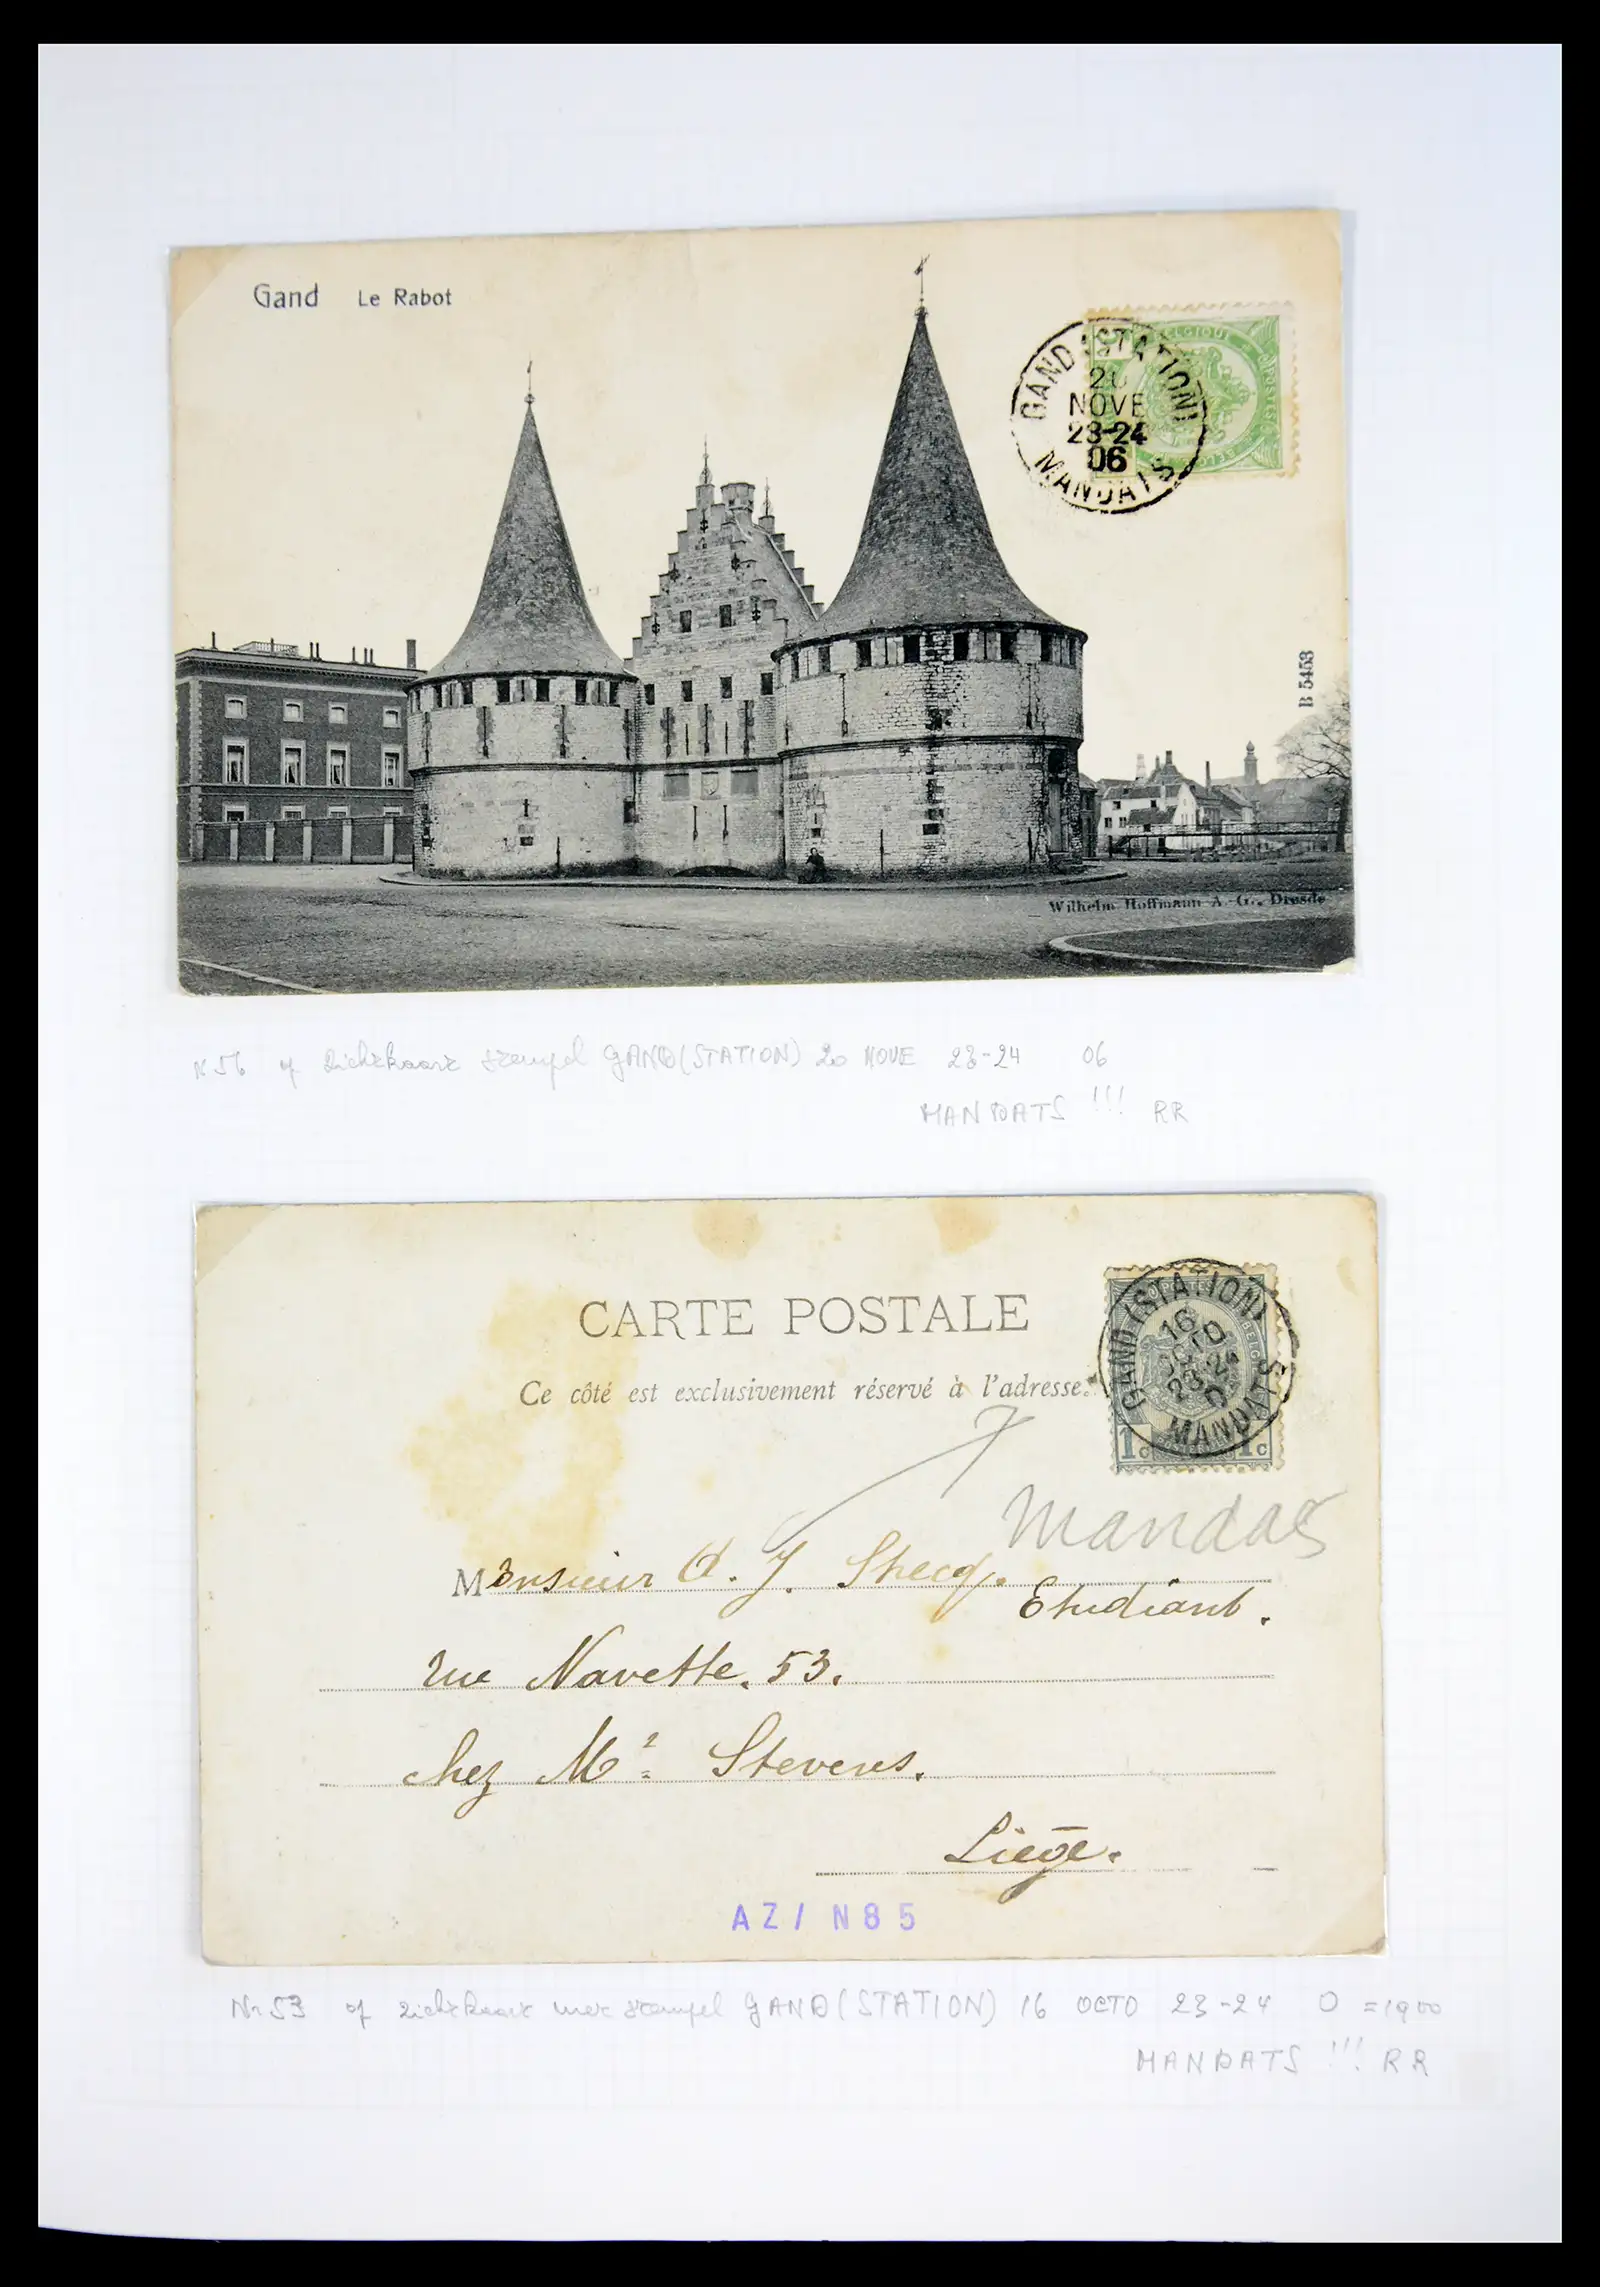 Gand Le Rabot
GAND (STATION)
20
NOVE
23-24
06
MANDATS
BELGIQUE
B 5453
Wilhelm Hoffmann A.-G., Dresde
N 56 op zichtkaart stempel GAND (STATION) 20 NOVE 23-24 06
MANDATS !!! RR
CARTE POSTALE
Ce côté est exclusivement réservé à l'adresse.
GAND (STATION)
16
23-24
0
MANDATS
1c 1c
Mandas
Monsieur A. J. Stecq.
Etudiant.
rue Navette. 53.
chez Mr Stevens.
Liège.
AZ/ N85
Nr 53 op zichtkaart met stempel GAND (STATION) 16 OCTO 23-24 0 =1900
MANDATS !!! RR